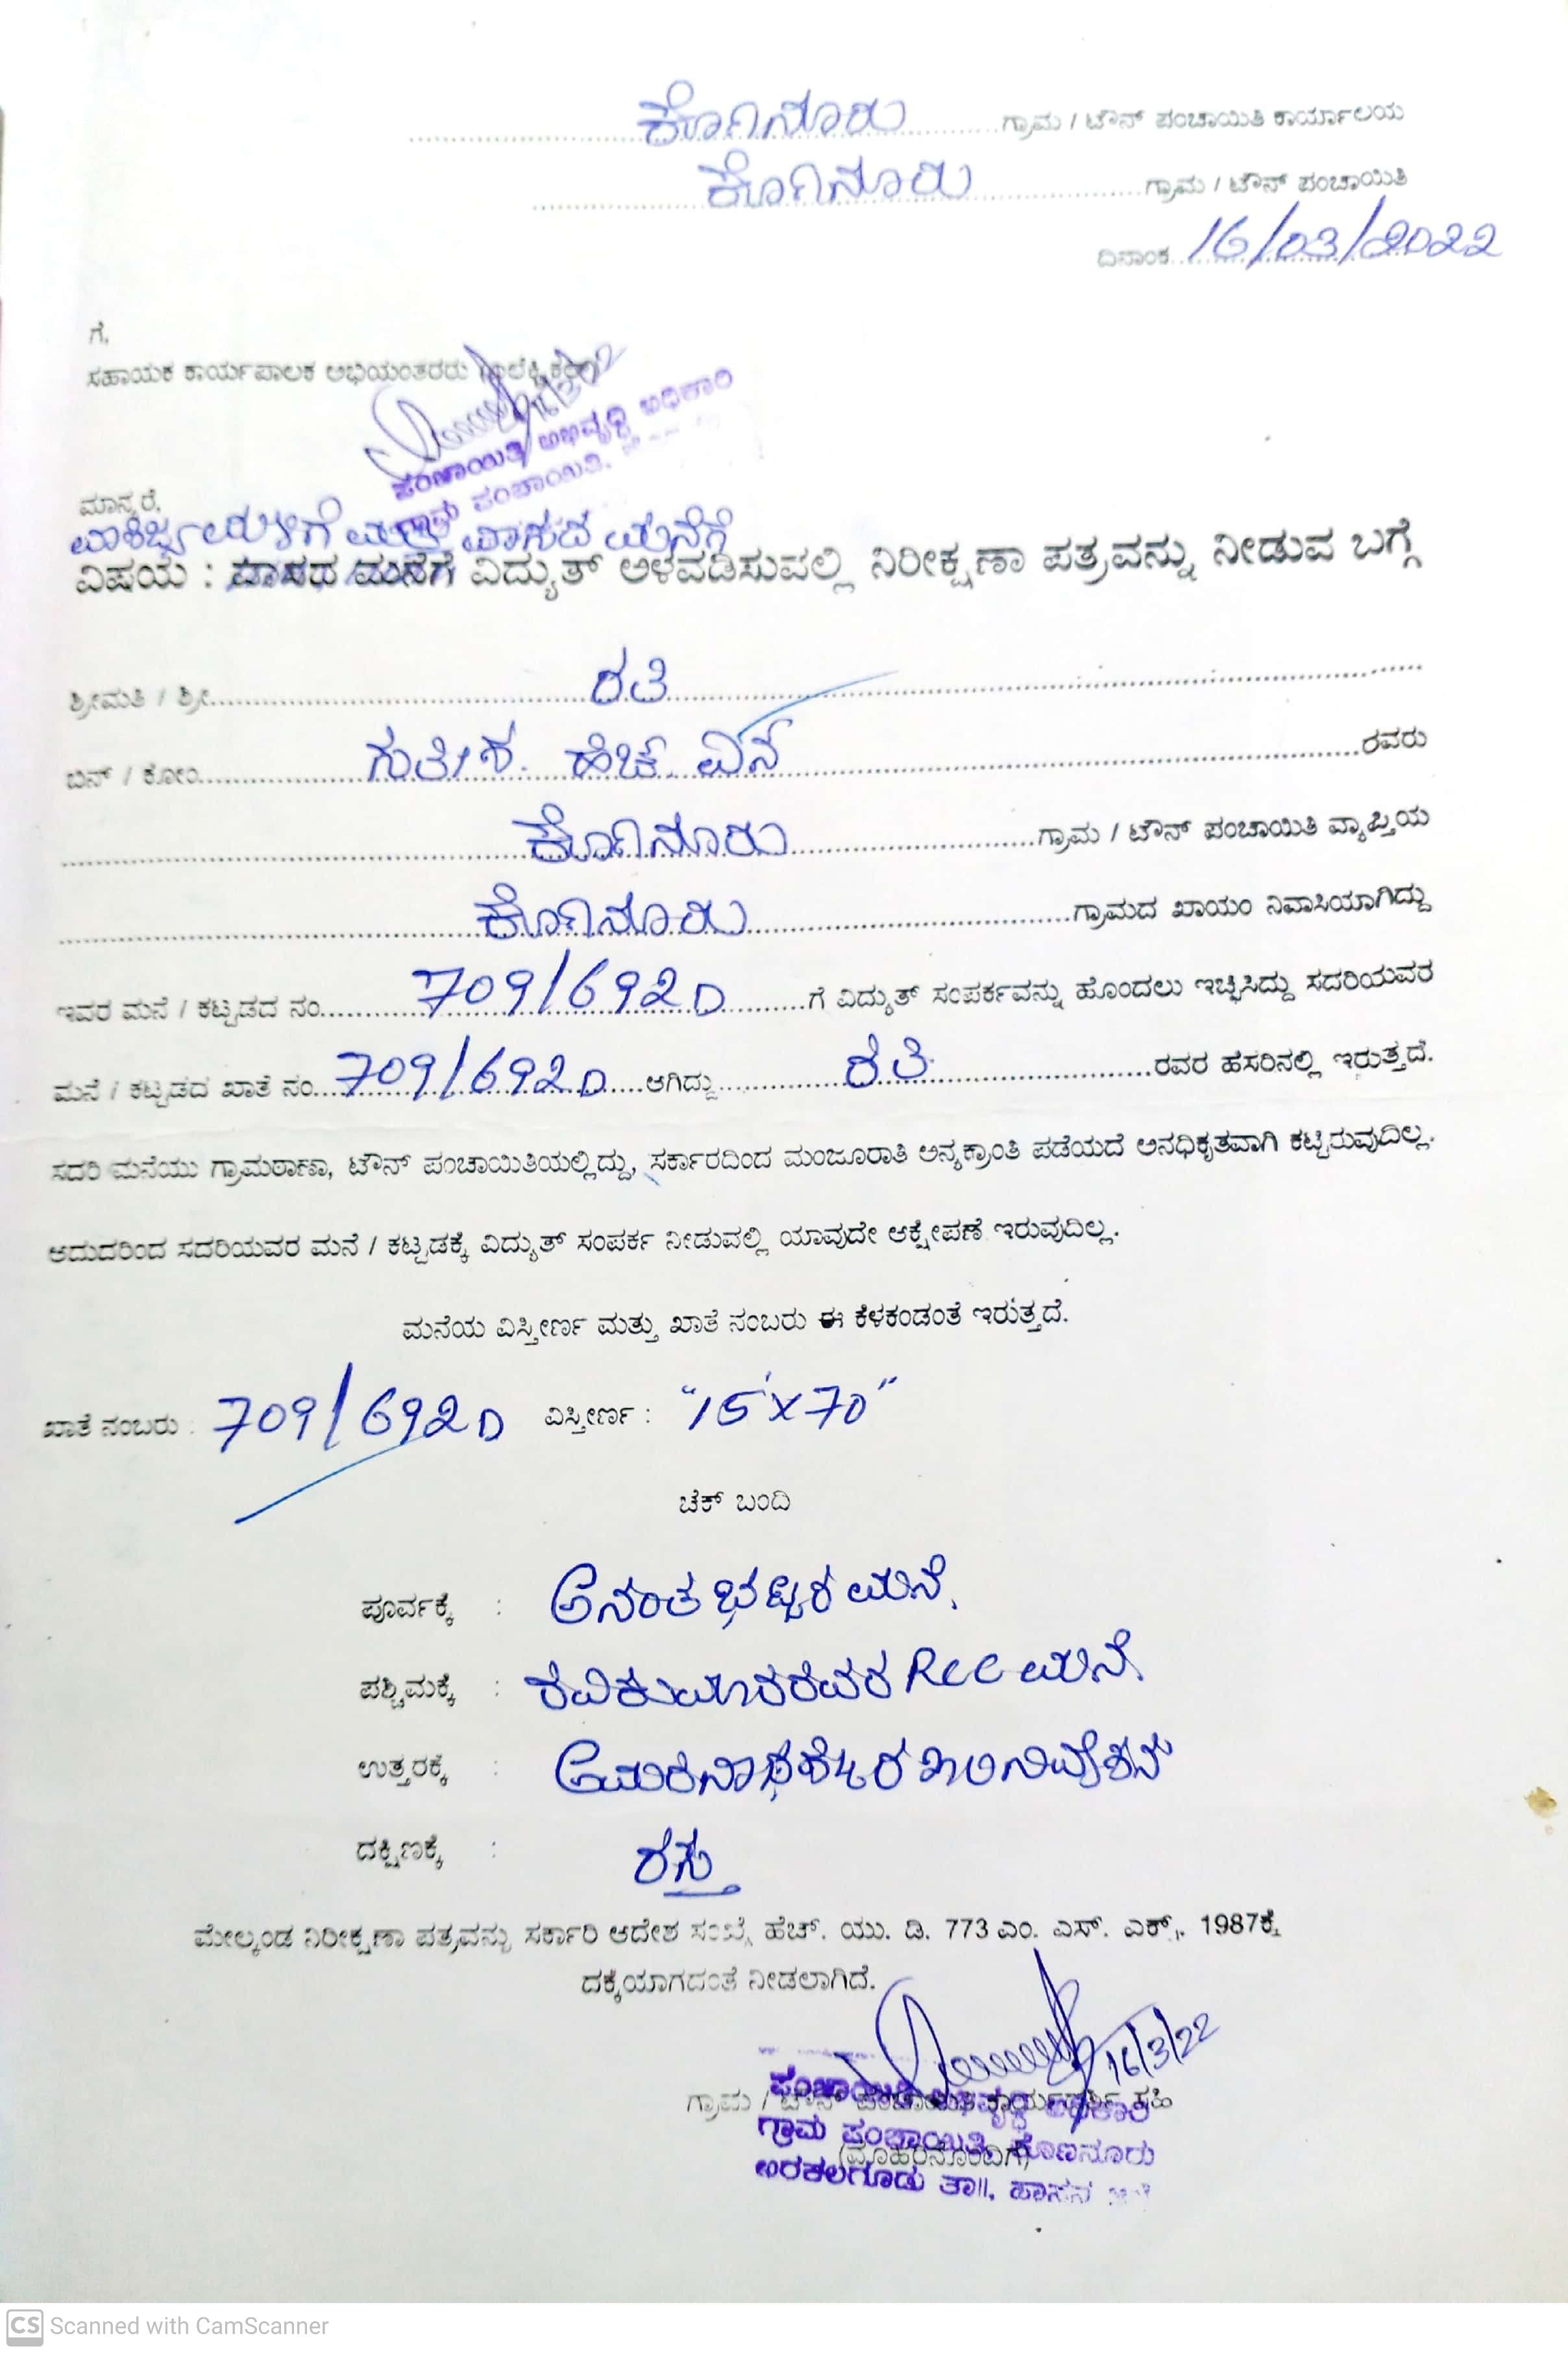 ಕೊಣನೂರು ಗ್ರಾಮ / ಟೌನ್ ಪಂಚಾಯಿತಿ ಕಾರ್ಯಾಲಯ
ಕೊಣನೂರು ಗ್ರಾಮ / ಟೌನ್ ಪಂಚಾಯಿತಿ
ದಿನಾಂಕ 16/03/2022
ಗೆ,
ಸಹಾಯಕ ಕಾರ್ಯಪಾಲಕ ಅಭಿಯಂತರರು
ಪಂಚಾಯಿತಿ ಅಭಿವೃದ್ಧಿ ಅಧಿಕಾರಿ
ಗ್ರಾಮ ಪಂಚಾಯಿತಿ.
ಮಾನ್ಯರೆ,
ಮತ್ತು ವಾಸದ ಮನೆಗೆ
ವಿಷಯ : ವಾಸದ ಮನೆಗೆ ವಿದ್ಯುತ್ ಅಳವಡಿಸುವಲ್ಲಿ ನಿರೀಕ್ಷಣಾ ಪತ್ರವನ್ನು ನೀಡುವ ಬಗ್ಗೆ
ಶ್ರೀಮತಿ / ಶ್ರೀ ರತಿ
ಬಿನ್ / ಕೋಂ ಹೆಚ್ ಎನ್ ರವರು
ಕೊಣನೂರು ಗ್ರಾಮ / ಟೌನ್ ಪಂಚಾಯಿತಿ ವ್ಯಾಪ್ತಿಯ
ಕೊಣನೂರು ಗ್ರಾಮದ ಖಾಯಂ ನಿವಾಸಿಯಾಗಿದ್ದು
ಇವರ ಮನೆ / ಕಟ್ಟಡದ ನಂ. 709/692D ಗೆ ವಿದ್ಯುತ್ ಸಂಪರ್ಕವನ್ನು ಹೊಂದಲು ಇಚ್ಛಿಸಿದ್ದು ಸದರಿಯವರ
ಮನೆ / ಕಟ್ಟಡದ ಖಾತೆ ನಂ. 709/692D ಆಗಿದ್ದು ರತಿ ರವರ ಹೆಸರಿನಲ್ಲಿ ಇರುತ್ತದೆ.
ಸದರಿ ಮನೆಯು ಗ್ರಾಮಠಾಣಾ, ಟೌನ್ ಪಂಚಾಯಿತಿಯಲ್ಲಿದ್ದು, ಸರ್ಕಾರದಿಂದ ಮಂಜೂರಾತಿ ಅನ್ಯಕ್ರಾಂತಿ ಪಡೆಯದೆ ಅನಧಿಕೃತವಾಗಿ ಕಟ್ಟಿರುವುದಿಲ್ಲ.
ಆದುದರಿಂದ ಸದರಿಯವರ ಮನೆ / ಕಟ್ಟಡಕ್ಕೆ ವಿದ್ಯುತ್ ಸಂಪರ್ಕ ನೀಡುವಲ್ಲಿ ಯಾವುದೇ ಆಕ್ಷೇಪಣೆ ಇರುವುದಿಲ್ಲ.
ಮನೆಯ ವಿಸ್ತೀರ್ಣ ಮತ್ತು ಖಾತೆ ನಂಬರು ಈ ಕೆಳಕಂಡಂತೆ ಇರುತ್ತದೆ.
ಖಾತೆ ನಂಬರು : 709/692D ವಿಸ್ತೀರ್ಣ : "15'x70"
ಚೆಕ್ ಬಂದಿ
ಪೂರ್ವಕ್ಕೆ : ಅನಂತ ಭಟ್ಟರ ಮನೆ.
ಪಶ್ಚಿಮಕ್ಕೆ : ರವಿಕುಮಾರರವರ RCC ಮನೆ.
ಉತ್ತರಕ್ಕೆ : ನಿವೇಶನ
ದಕ್ಷಿಣಕ್ಕೆ : ರಸ್ತೆ
ಮೇಲ್ಕಂಡ ನಿರೀಕ್ಷಣಾ ಪತ್ರವನ್ನು ಸರ್ಕಾರಿ ಆದೇಶ ಸಂಖ್ಯೆ ಹೆಚ್. ಯು. ಡಿ. 773 ಎಂ. ಎಸ್. ಎಕ್ಸ್. 1987ಕ್ಕೆ
ದಕ್ಕೆಯಾಗದಂತೆ ನೀಡಲಾಗಿದೆ.
16/3/22
ಗ್ರಾಮ / ಟೌನ್ ಪಂಚಾಯಿತಿ ಕಾರ್ಯದರ್ಶಿ ಸಹಿ
(ಮೊಹರಿನೊಂದಿಗೆ)
ಪಂಚಾಯಿತಿ ಅಭಿವೃದ್ಧಿ ಅಧಿಕಾರಿ
ಗ್ರಾಮ ಪಂಚಾಯಿತಿ, ಕೊಣನೂರು
ಅರಕಲಗೂಡು ತಾ||, ಹಾಸನ
CS Scanned with CamScanner